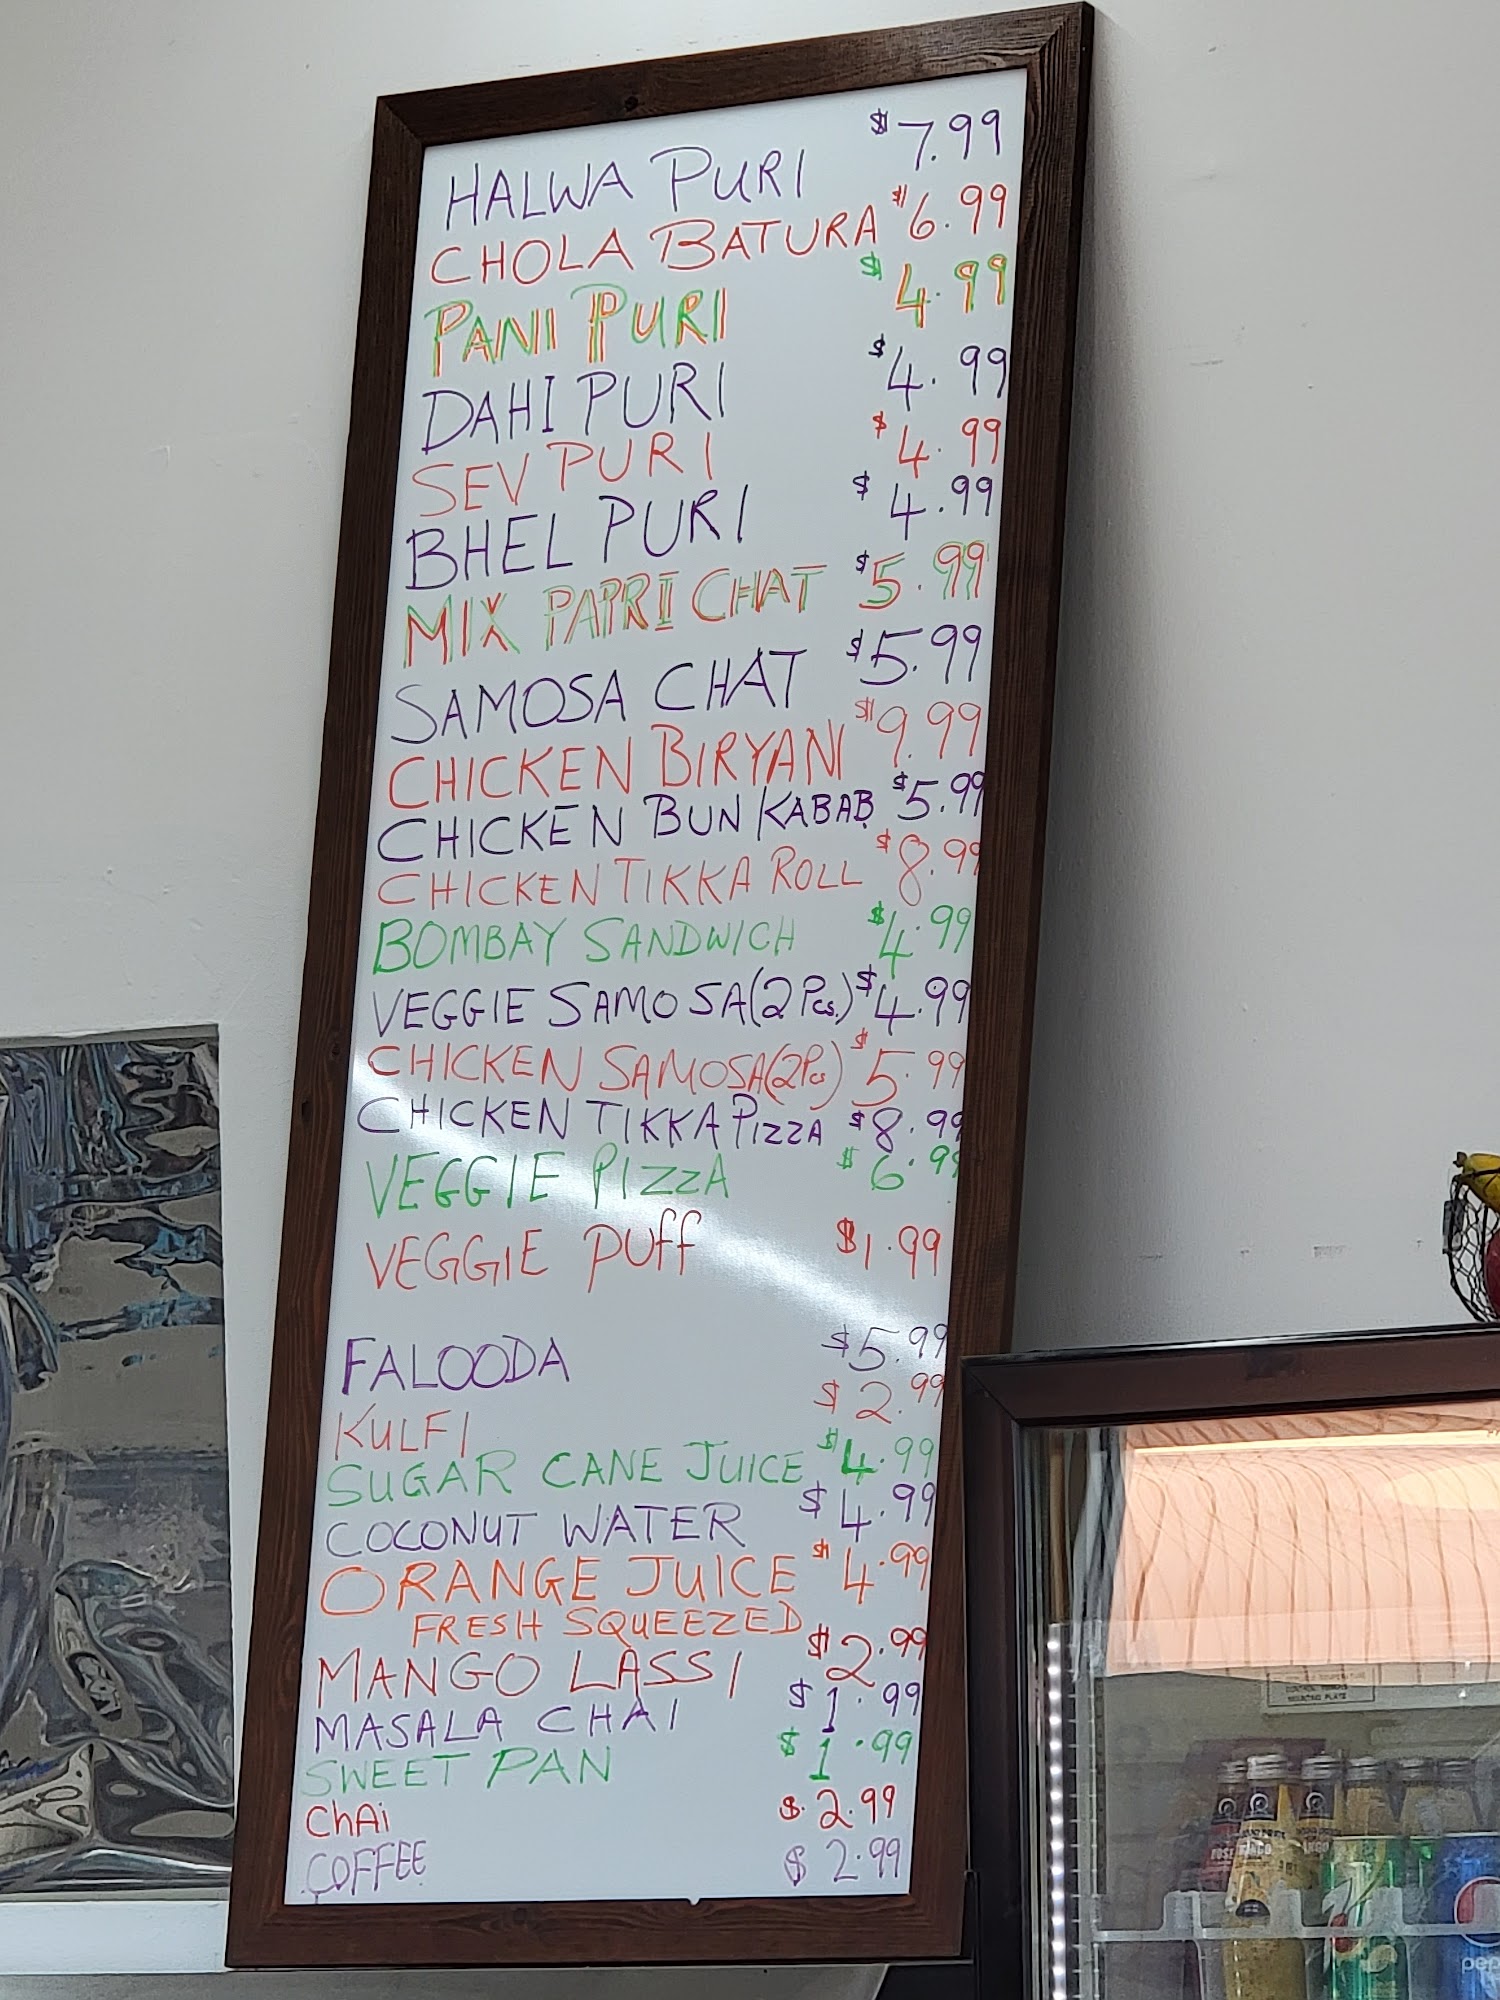 HALWA PURI $7.99
CHOLA BATURA $6.99
PANI PURI $4.99
DAHI PURI $4.99
SEV PURI $4.99
BHEL PURI $4.99
MIX PAPRI CHAT $5.99
SAMOSA CHAT $5.99
CHICKEN BIRYANI $9.99
CHICKEN BUN KABAB $5.99
CHICKEN TIKKA ROLL $8.99
BOMBAY SANDWICH $4.99
VEGGIE SAMOSA(2 Pcs.) $4.99
CHICKEN SAMOSA(2Pcs) $5.99
CHICKEN TIKKA PIZZA $8.99
VEGGIE PIZZA $6.99
VEGGIE PUFF $1.99
FALOODA $5.99
KULFI $2.99
SUGAR CANE JUICE $4.99
COCONUT WATER $4.99
ORANGE JUICE $4.99
FRESH SQUEEZED
MANGO LASSI $2.99
MASALA CHAI $1.99
SWEET PAN $1.99
ChAi $2.99
COFFEE $2.99
pep